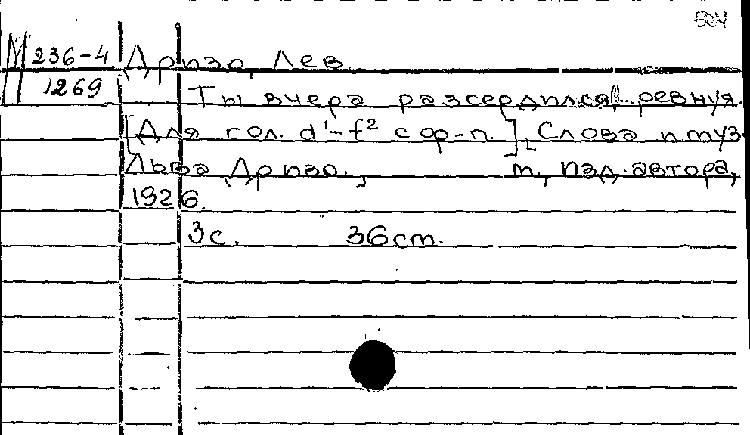 504
М 236-4 Дризо, Лев.
1269 Ты вчера рассердился, ревнуя.
[Для гол. d¹-f² с ф-п.], Слова и муз.
Льва Дризо., М., изд. автора,
1926.
3с. 36 cm.